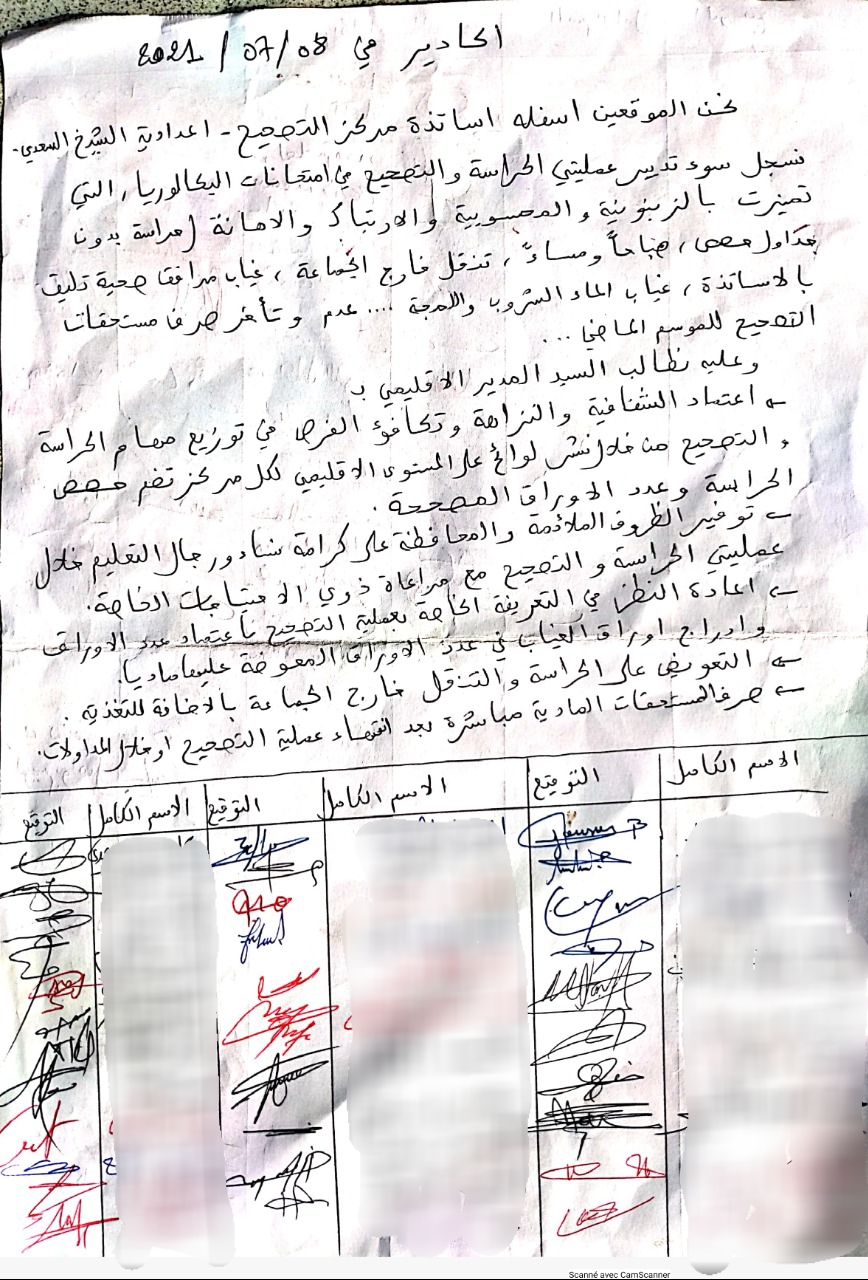 اكادير في 08/07/2021
نحن الموقعين اسفله اساتذة مركز التصحيح - اعدادية الشيخ السعدي -
نسجل سوء تدبير عمليتي الحراسة والتصحيح في امتحانات البكالوريا, التي
تميزت بالزبونية والمحسوبية والارتباك والاهانة (حراسة بدون
جداول حصص, صباحاً ومساءً, تنقل خارج الجماعة, غياب مرافق صحية تليق
بالاساتذة, غياب الماء الشروب واللمجة .... عدم و تأخر صرف مستحقات
التصحيح للموسم الماضي ...
وعليه نطالب السيد المدير الاقليمي ب
← اعتماد الشفافية والنزاهة وتكافؤ الفرص في توزيع مهام الحراسة
و التصحيح من خلال نشر لوائح على المستوى الاقليمي لكل مركز تضم حصص
الحراسة وعدد الاوراق المصححة.
← توفير الظروف الملائمة والمحافظة على كرامة نساء ورجال التعليم خلال
عمليتي الحراسة و التصحيح مع مراعاة ذوي الاحتياجات الخاصة.
← اعادة النظر في التعريفة الخاصة بعملية التصحيح باعتماد عدد الاوراق
وادراج اوراق الغياب في عدد الاوراق المعوضة عليها ماديا.
← التعويض على الحراسة والتنقل خارج الجماعة بالاضافة للتغذية.
← صرف المستحقات المادية مباشرة بعد انتهاء عملية التصحيح او خلال المداولات.
الاسم الكامل التوقيع الاسم الكامل التوقيع الاسم الكامل التوقيع
Scanné avec CamScanner